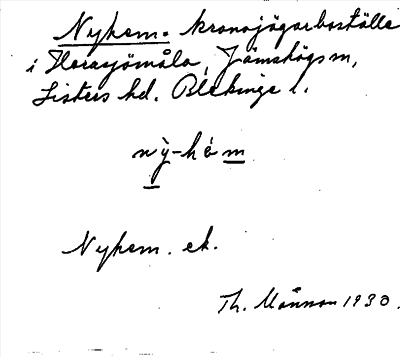 Nyhem. kronojägarboställe
i Harasjömåla, Jämshögs sn,
Listers hd. Blekinge l.
nỳ-hèm
Nyhem. ek.
Th. Månsson 1930.